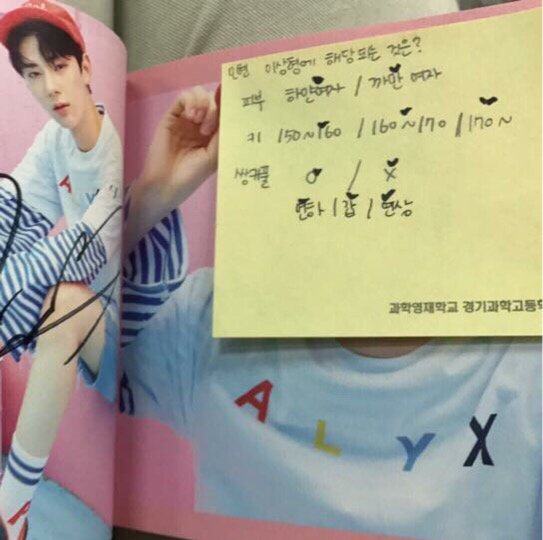 이상형에 해당되는 것은?
피부 하얀여자 / 까만 여자
키 150~160 / 160~170 / 170~
쌍커풀 O / X
연하 / 갑 / 연상
과학영재학교 경기과학고등학
A L Y X
A L Y